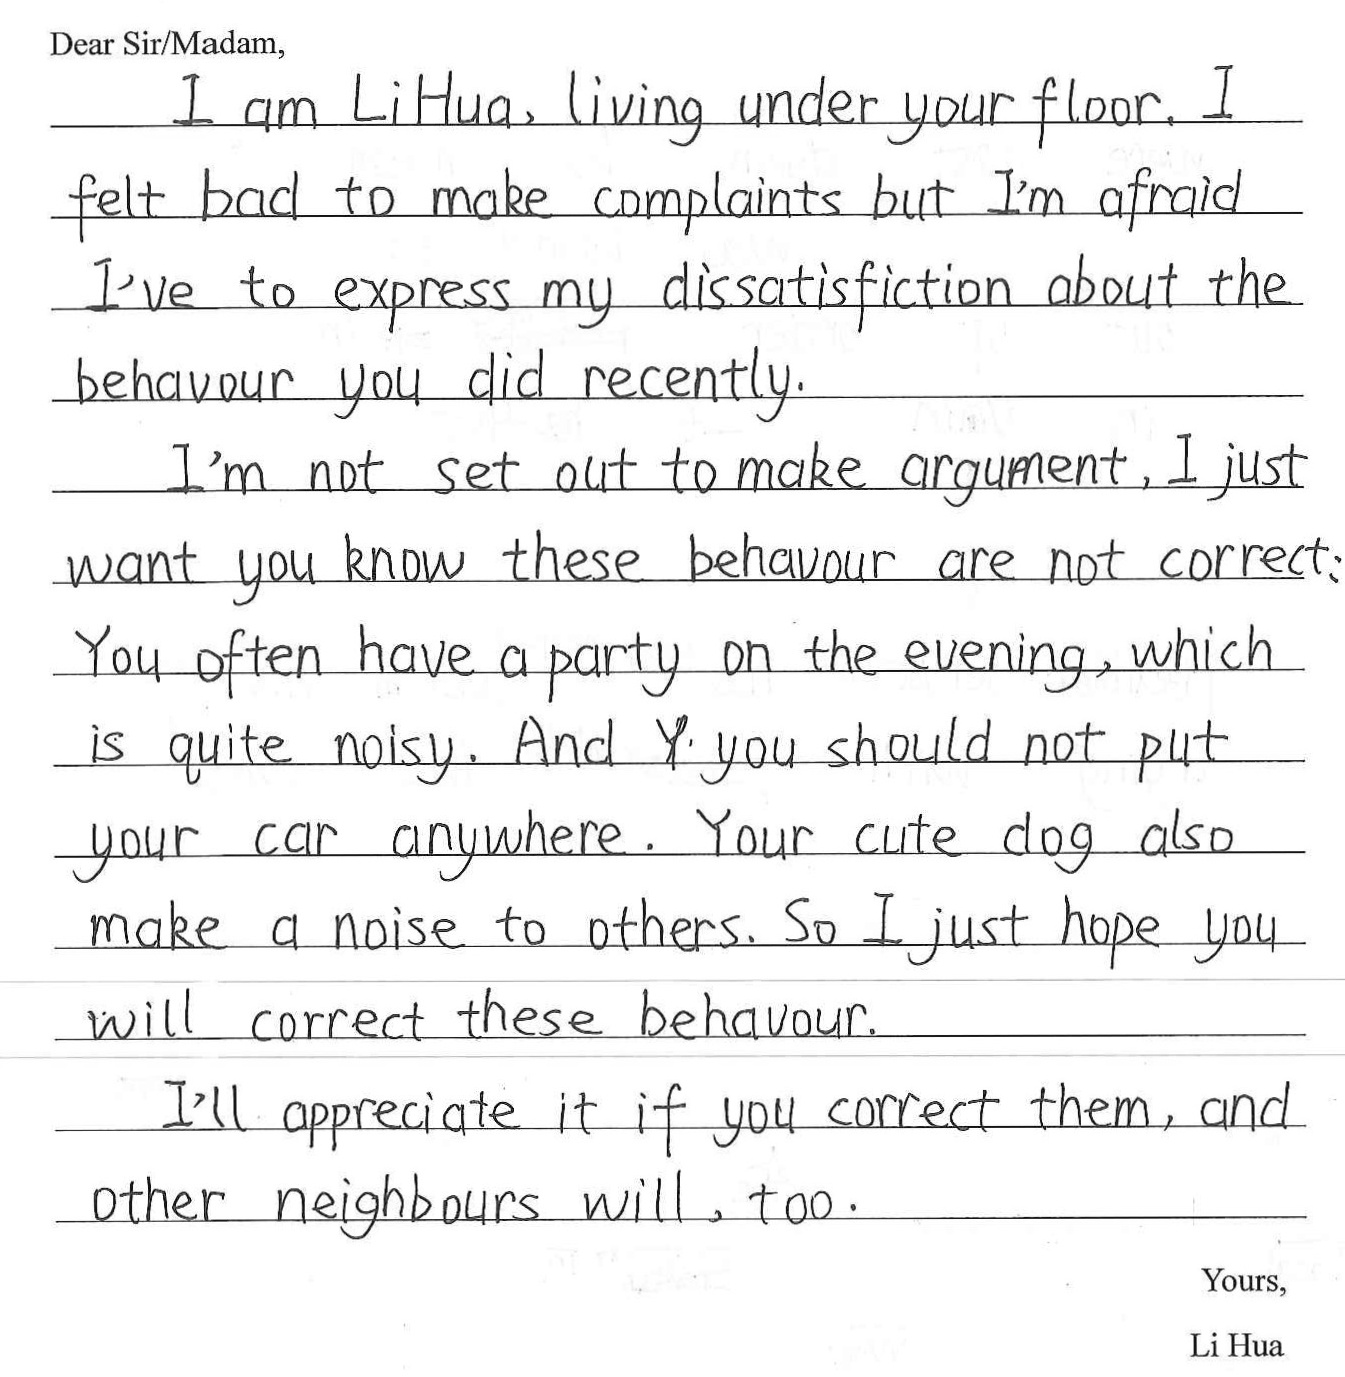 Dear Sir/Madam,
I am Li Hua, living under your floor. I
felt bad to make complaints but I'm afraid
I've to express my dissatisfiction about the
behavour you did recently.
I'm not set out to make argument, I just
want you know these behavour are not correct:
You often have a party on the evening, which
is quite noisy. And you should not put
your car anywhere. Your cute dog also
make a noise to others. So I just hope you
will correct these behavour.
I'll appreciate it if you correct them, and
other neighbours will, too.
Yours,
Li Hua